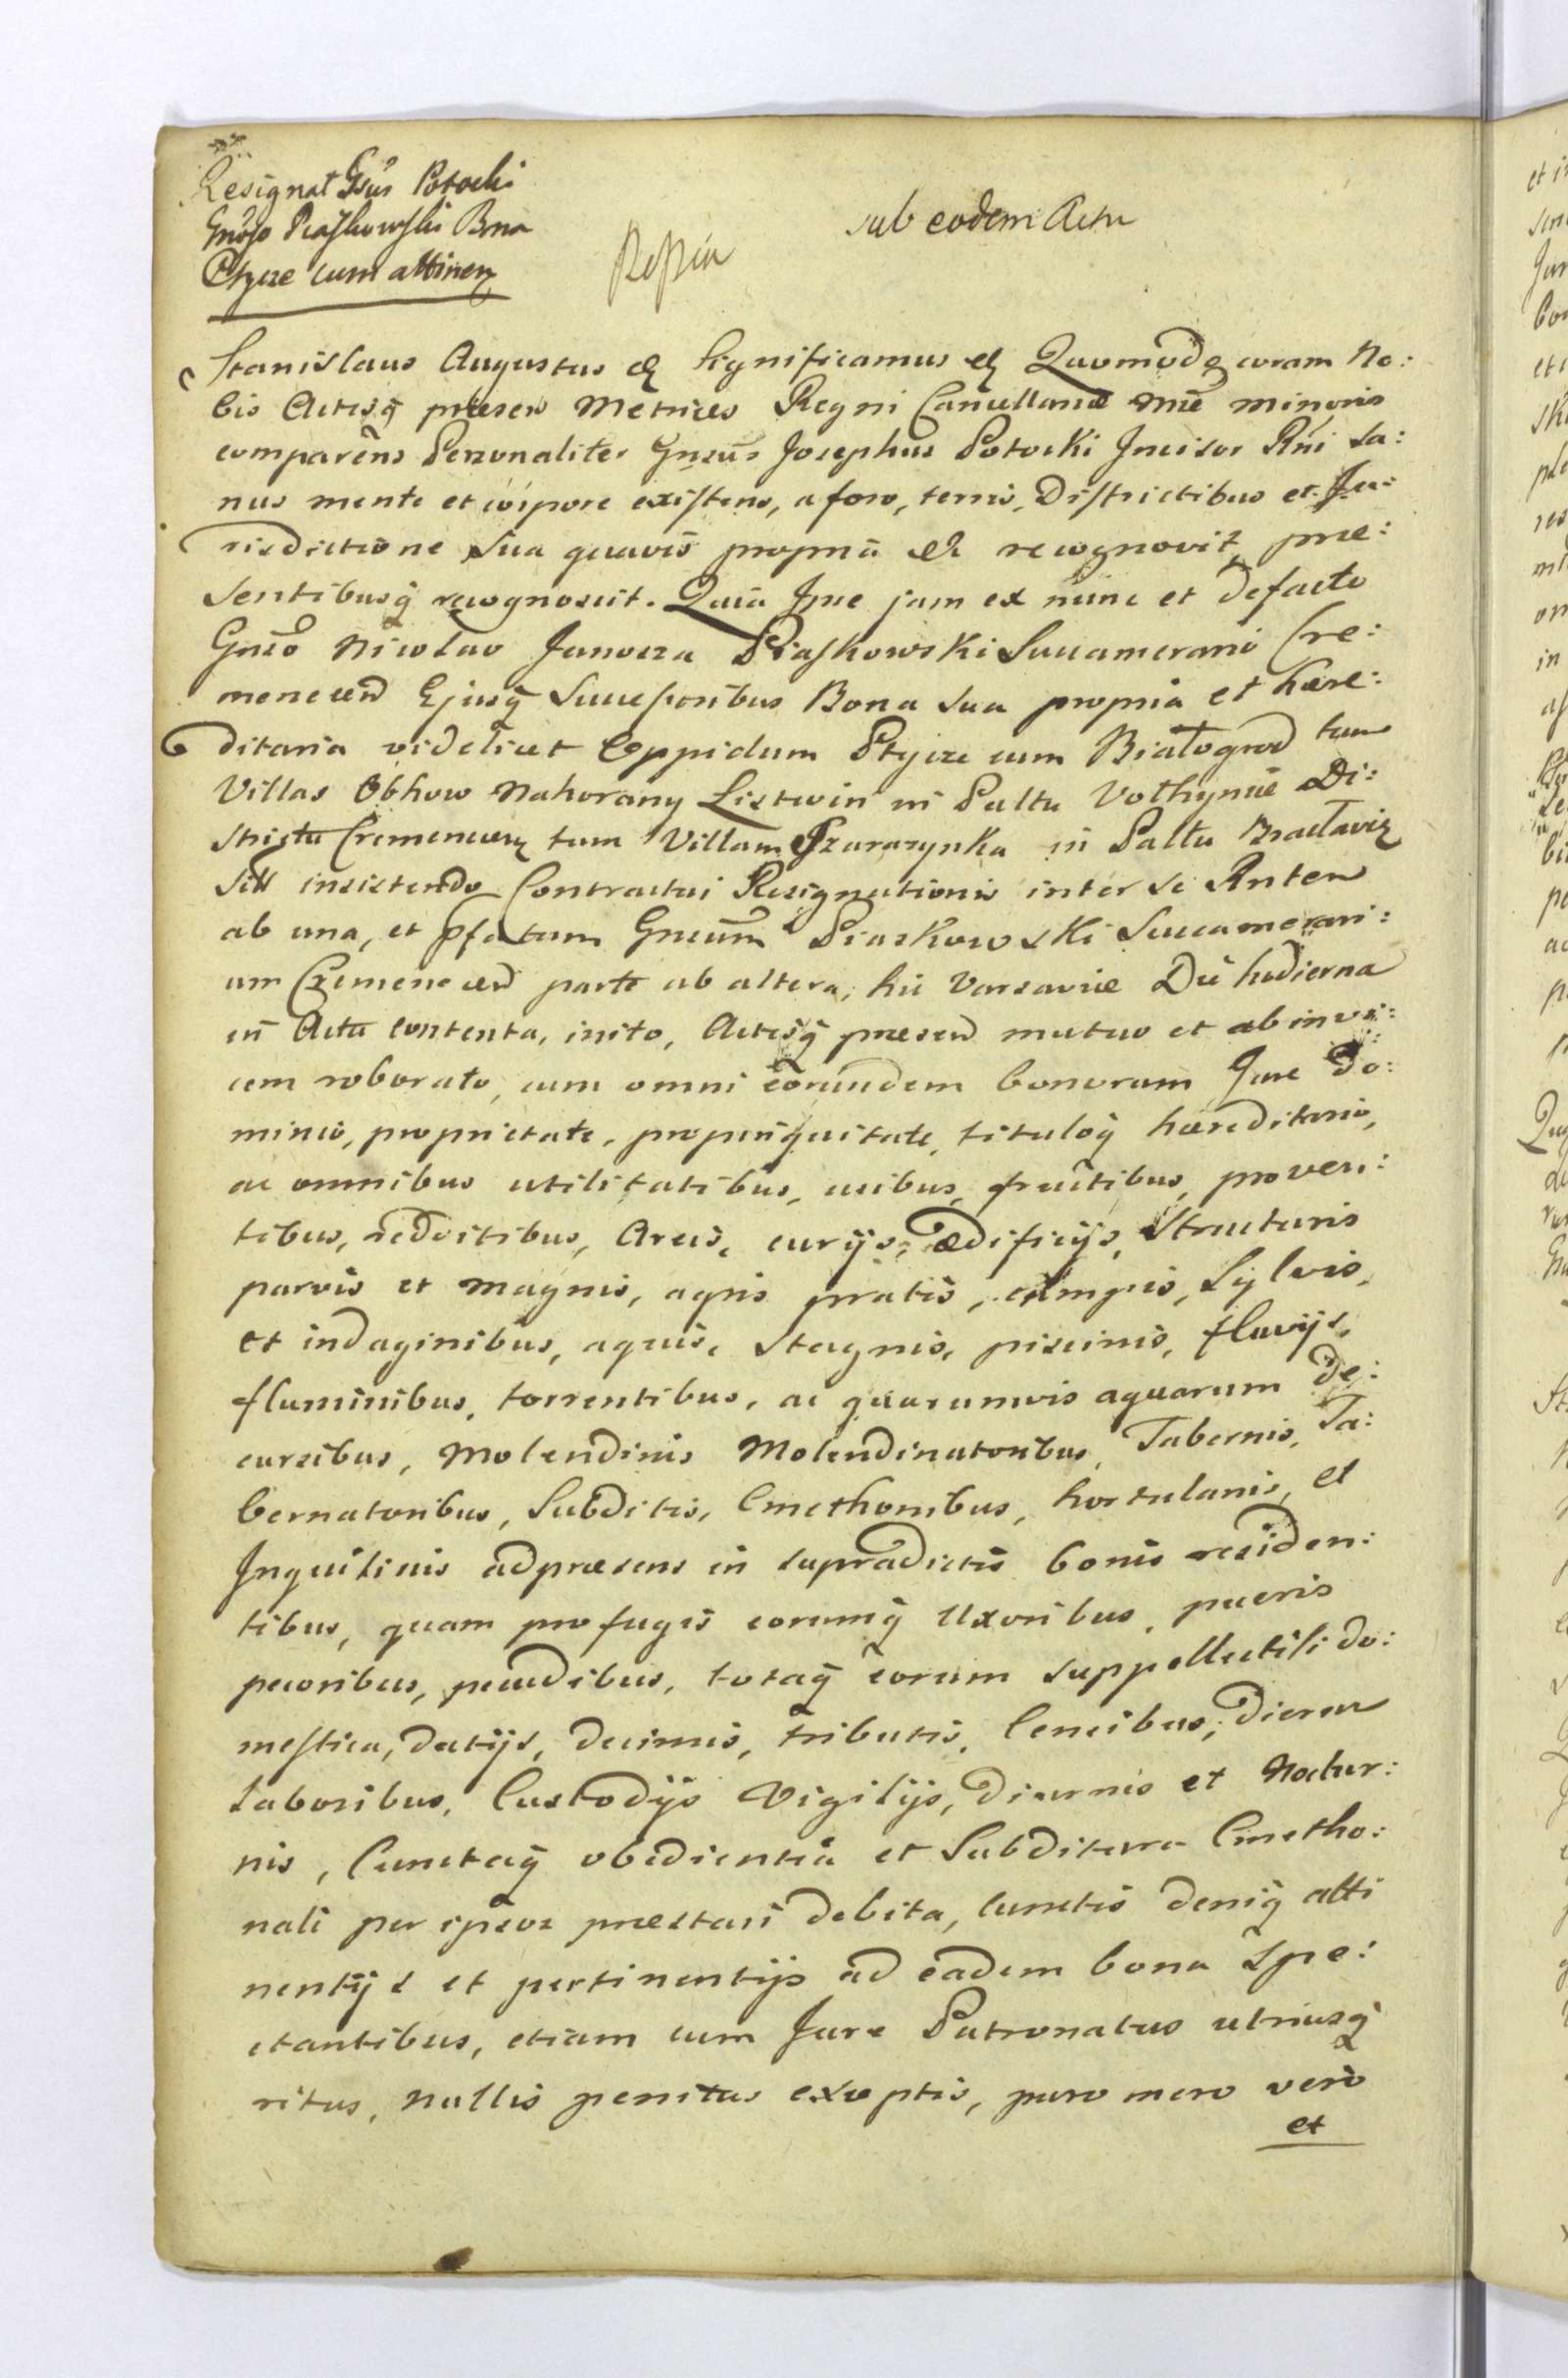 Resignat Gsus Potocki
Gnoso Piaskowski Bona
Ptycze cum attinen
sub eodem Actu
Stanislaus Augustus etc Significamus etc Quomodo coram No:
bis Actisq presen Metrices Regni Cancellariæ Mræ minoris
comparens Personaliter Gnsus Josephus Potocki Incisor Rni sa:
nus mente et corpore existens, a foro, terris, Districtibus et Ju:
risdictione sua quavis propria etc recognovit, præ:
sentibusq recognoscit. Quia Ipse jam ex nunc et defacto
Gnso Nicolao Piaskowski Succamerario Cre:
menecen Ejusq Successoribus Bona sua propria et hære:
ditaria videlicet Oppidum Ptycze cum Białogrod tum
Villas Obhow Nahorany Listwin in Paltu Volhyniæ Di:
strictu Cremenecen tum Villam in Paltu Bracłavien
sitt insistendo Contractui Resignationis inter se Rnten
ab una, et pfatum Gnsum Piaskowski Succamerari:
um Cremenecen parte ab altera, hic Varsaviæ Die hodierna
in Actu contenta, inito, Actisq præsen mutuo et ab invi:
cem roborato, cum omni eorundem bonorum Jure do:
minio, proprietate, propinquitate, tituloq hæreditario,
ac omnibus utilitatibus, usibus, fructibus, proven:
tibus, redditibus, Areis, curijs, Ædificijs, Structuris
parvis et magnis, agris pratis, campis, Sylvis,
et indaginibus, aquis, stagnis, piscinis, fluvijs,
fluminibus, torrentibus, ac quarumvis aquarum de:
cursibus, Molendinis Molendinatoribus, Tabernis, Ta:
bernatoribus, Subditis, Cmethonibus, hortulanis, et
Inquilinis adpræsens in supradictis bonis residen:
tibus, quam profugis eorumq Uxoribus, pueris
pecoribus, pecudibus, totaq eorum suppellectili do:
mestica, datijs, decimis, tributis, Censibus, dierum
laboribus, Custodijs Vigilijs, diurnis et Noctur:
nis, Cunctaq obedientia et Subditura Cmetho:
nali per ipsos præstari debita, cunctis deniq atti
nentijs et pertinentijs ad eadem bona spe:
ctantibus, etiam cum Jure Patronatus utriusq
ritus, nullis penitus exceptis, puro mero vero
et